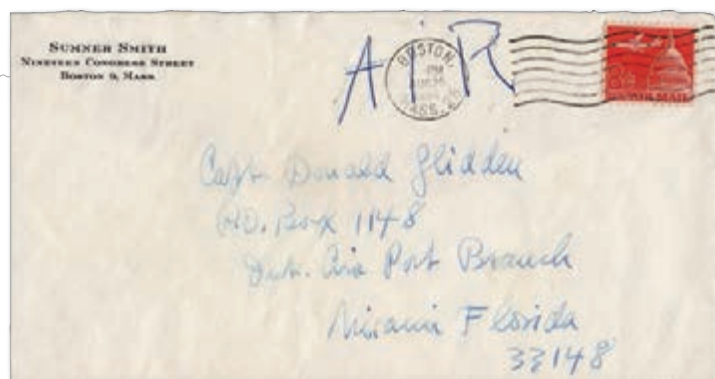 SUMNER SMITH
NINETEEN CONGRESS STREET
BOSTON 9, MASS.
AiR
BOSTON,
PM
MASS.
8¢
AIR MAIL
Capt. Donald Glidden
P.O. Box 1148
Int. Air Port Branch
Miami Florida
33148